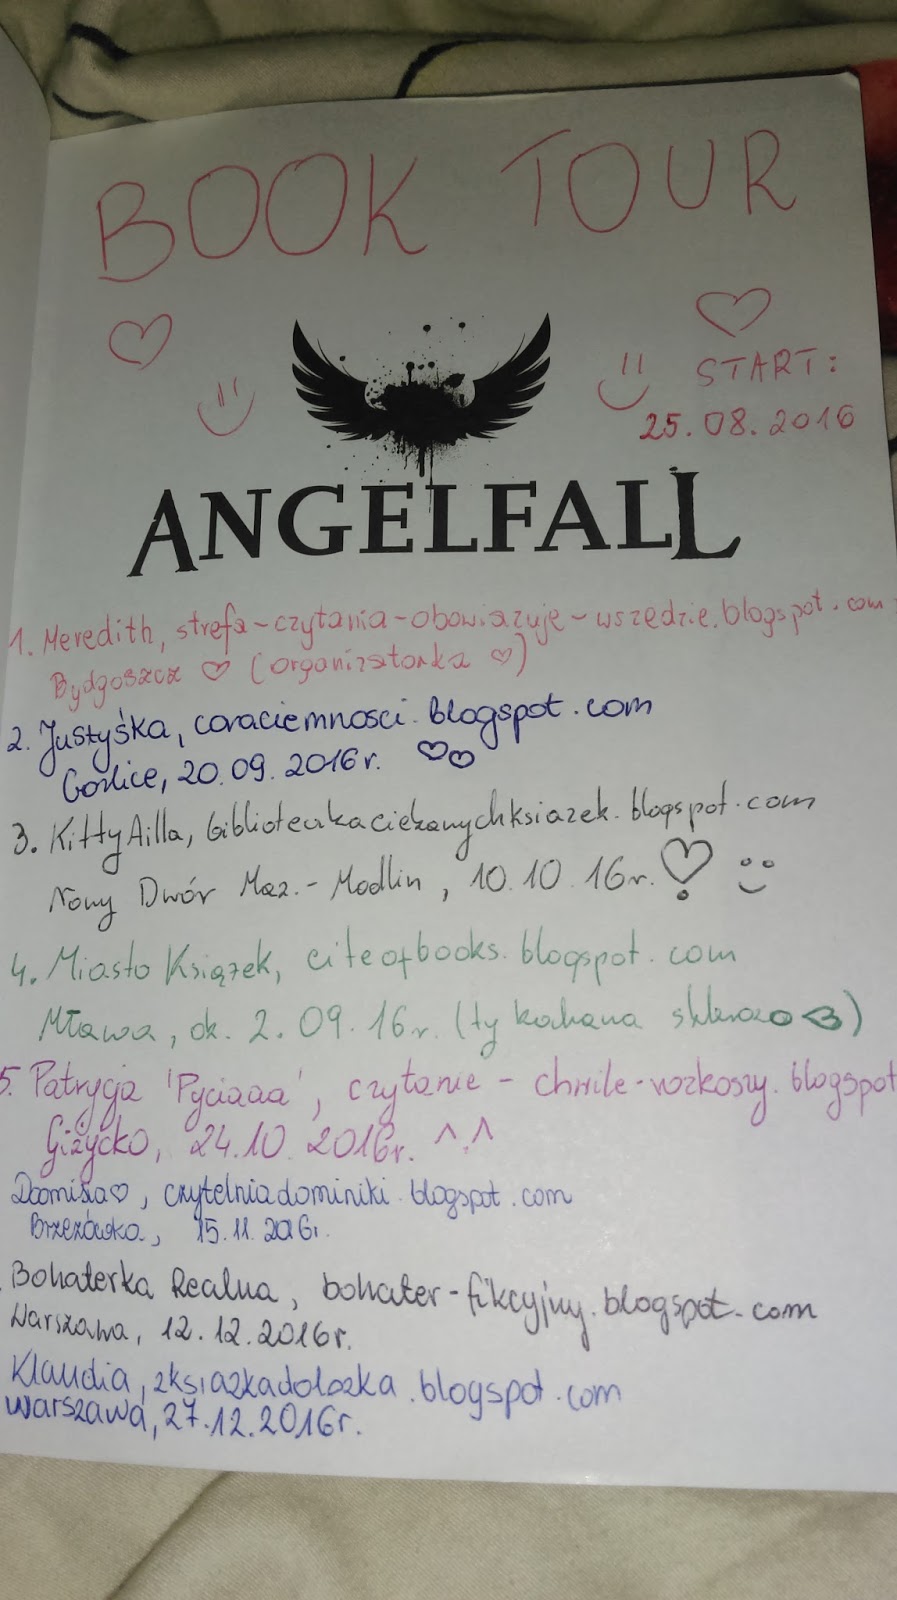 BOOK TOUR
START:
25.08.2016
ANGELFALL
1. Meredith, strefa-czytania-obowiazuje-wszedzie.blogspot.com
Bydgoszcz ♡ (organizatorka ♡)
2. Justyśka, coraciemnosci.blogspot.com
Gorlice, 20.09.2016r. ♡♡
3. KittyAilla, biblioteczkaciekawychksiazek.blogspot.com
Nowy Dwór Maz.-Modlin, 10.10.16r.
4. Miasto Książek, citeofbooks.blogspot.com
Mława, ok. 2.09.16r. (ty kochana sklerozo <3)
5. Patrycja 'Pyciaaa', czytanie-chwile-rozkoszy.blogspot
Giżycko, 24.10.2016r. ^.^
Domiśka♡, czytelniadominiki.blogspot.com
Brzezówka, 15.11.2016r.
Bohaterka Realna, bohater-fikcyjny.blogspot.com
Warszawa, 12.12.2016r.
Klaudia, zksiazkadolozka.blogspot.com
Warszawa, 27.12.2016r.